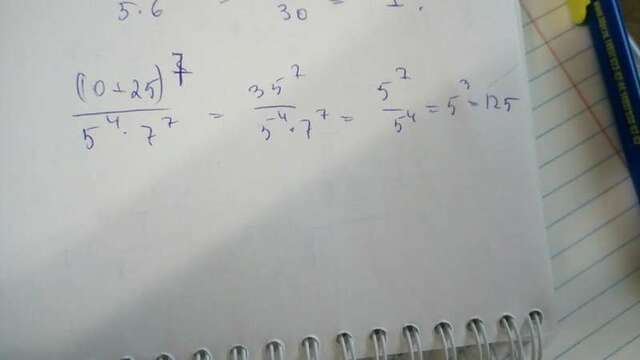 5·6 30 = 1.
(10+25)^7 / 5^4 · 7^7 = 35^7 / 5^4 · 7^7 = 5^7 / 5^4 = 5^3 = 125